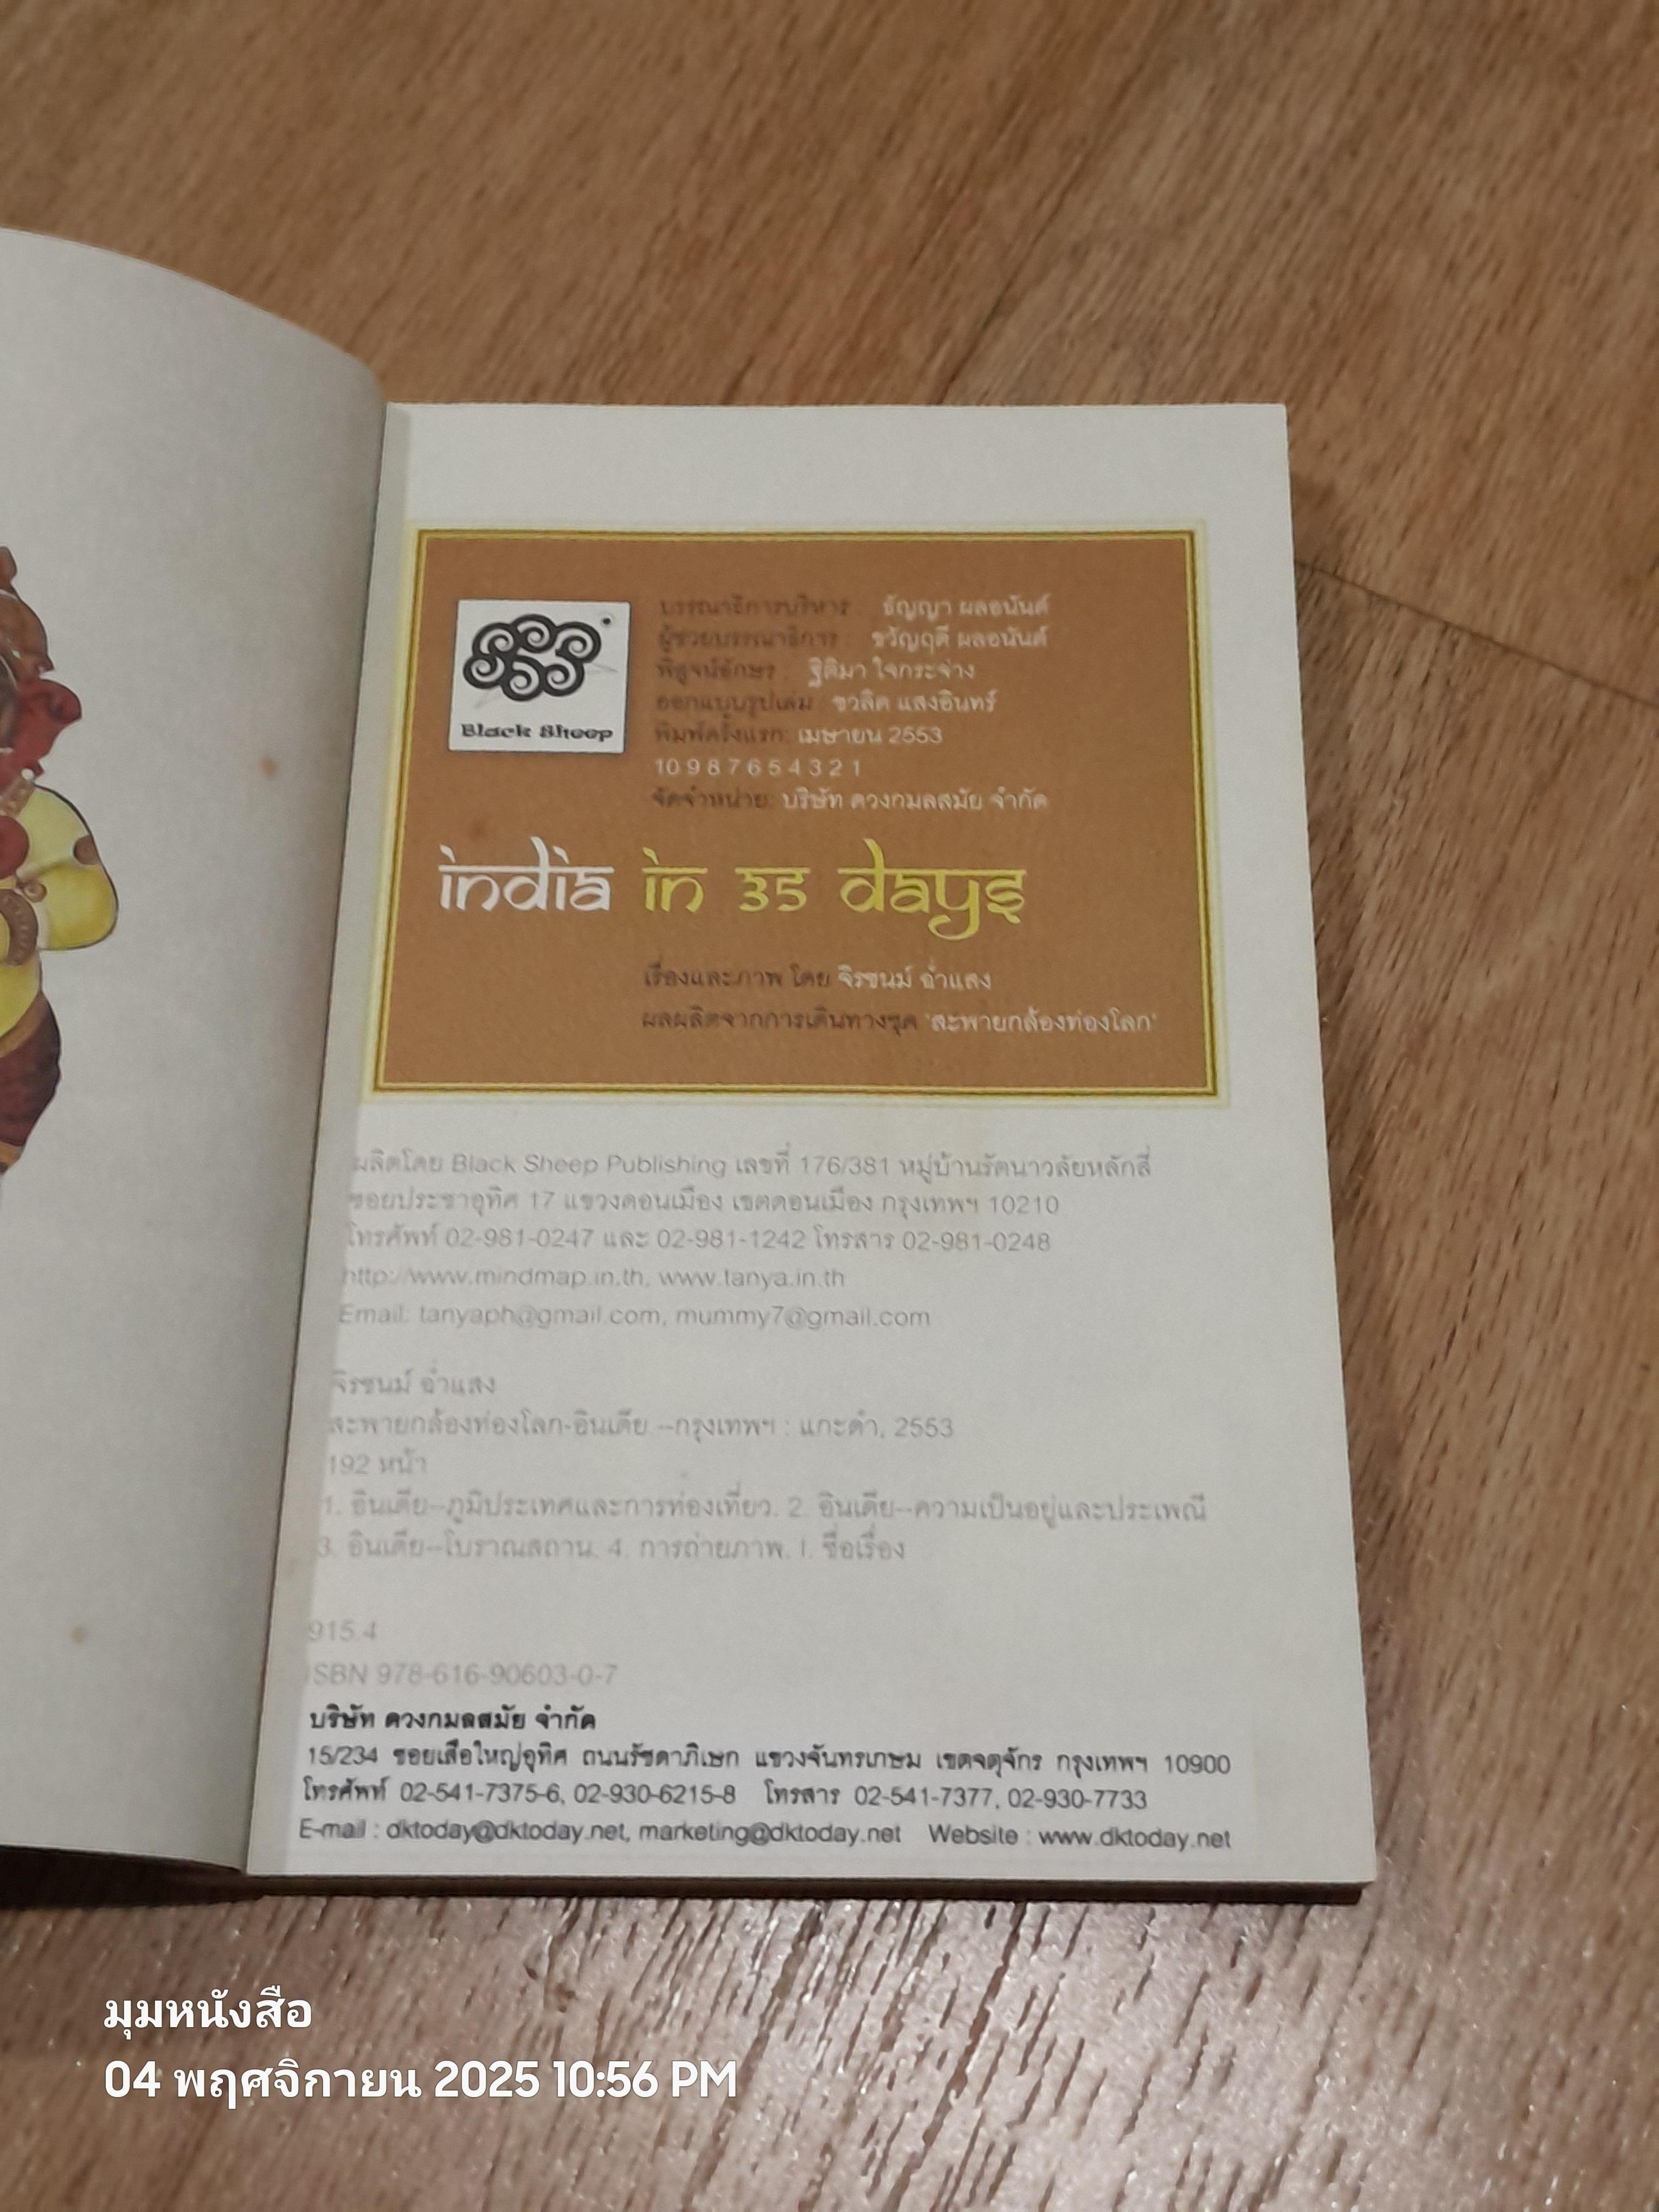 Black Sheep
บรรณาธิการบริหาร : ธัญญา ผลอนันต์
ผู้ช่วยบรรณาธิการ : ขวัญฤดี ผลอนันต์
พิสูจน์อักษร : ฐิติมา ใจกระจ่าง
ออกแบบรูปเล่ม : ชวลิต แสงอินทร์
พิมพ์ครั้งแรก: เมษายน 2553
10 9 8 7 6 5 4 3 2 1
จัดจำหน่าย: บริษัท ดวงกมลสมัย จำกัด
india in 35 days
เรื่องและภาพ โดย จิรชนม์ ฉ่ำแสง
ผลผลิตจากการเดินทางชุด 'สะพายกล้องท่องโลก'
ผลิตโดย Black Sheep Publishing เลขที่ 176/381 หมู่บ้านรัตนาวลัยหลักสี่
ซอยประชาอุทิศ 17 แขวงดอนเมือง เขตดอนเมือง กรุงเทพฯ 10210
โทรศัพท์ 02-981-0247 และ 02-981-1242 โทรสาร 02-981-0248
http://www.mindmap.in.th, www.tanya.in.th
Email: tanyaph@gmail.com, mummy7@gmail.com
จิรชนม์ ฉ่ำแสง
สะพายกล้องท่องโลก-อินเดีย.--กรุงเทพฯ : แกะดำ, 2553
192 หน้า
1. อินเดีย--ภูมิประเทศและการท่องเที่ยว. 2. อินเดีย--ความเป็นอยู่และประเพณี
3. อินเดีย--โบราณสถาน. 4. การถ่ายภาพ. I. ชื่อเรื่อง
915.4
ISBN 978-616-90603-0-7
บริษัท ดวงกมลสมัย จำกัด
15/234 ซอยเสือใหญ่อุทิศ ถนนรัชดาภิเษก แขวงจันทรเกษม เขตจตุจักร กรุงเทพฯ 10900
โทรศัพท์ 02-541-7375-6, 02-930-6215-8 โทรสาร 02-541-7377, 02-930-7733
E-mail : dktoday@dktoday.net, marketing@dktoday.net Website : www.dktoday.net
มุมหนังสือ
04 พฤศจิกายน 2025 10:56 PM